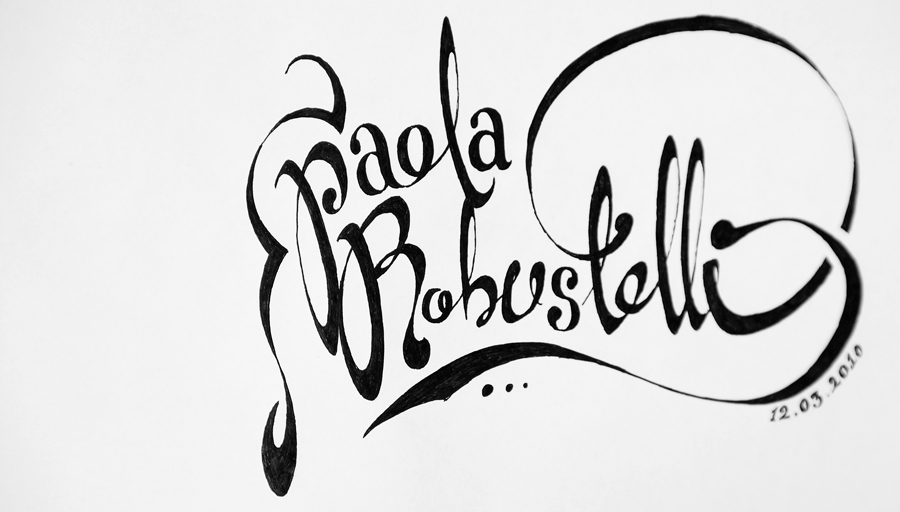 Paola
Robustelli
...
12.03.2010